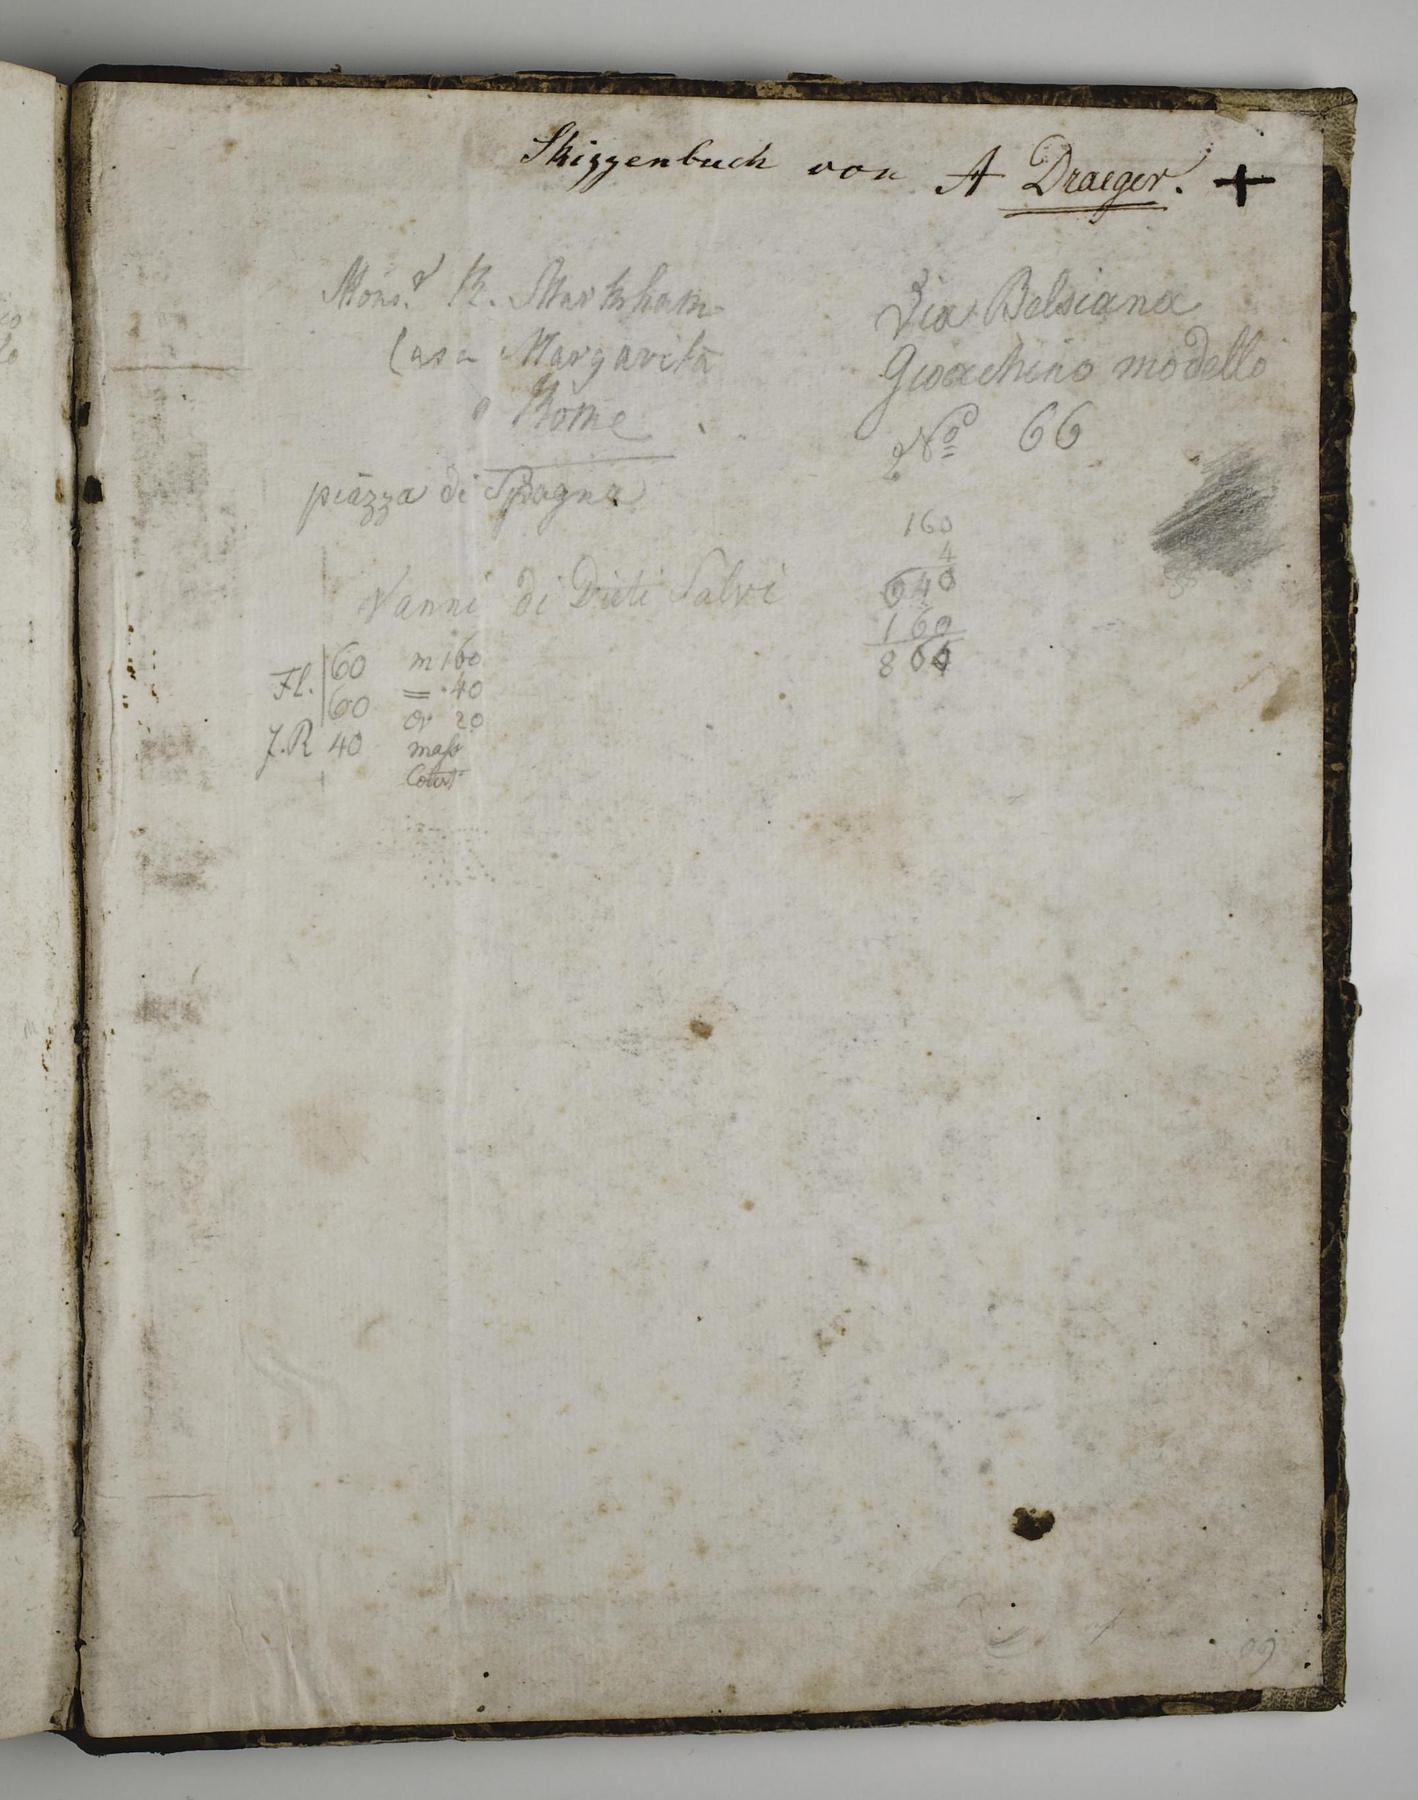 Skizzenbuch von A Draeger. +
Mons.r R. Markham
Casa Margarita
a Rome
piazza di Spagna
Via Belsiana
Gioachino modello
No 66
160
4
640
160
864
Vanni di Dieti Salvi
Fl. 60 m 160
60 = 40
or 20
J.R 40 mass
Court